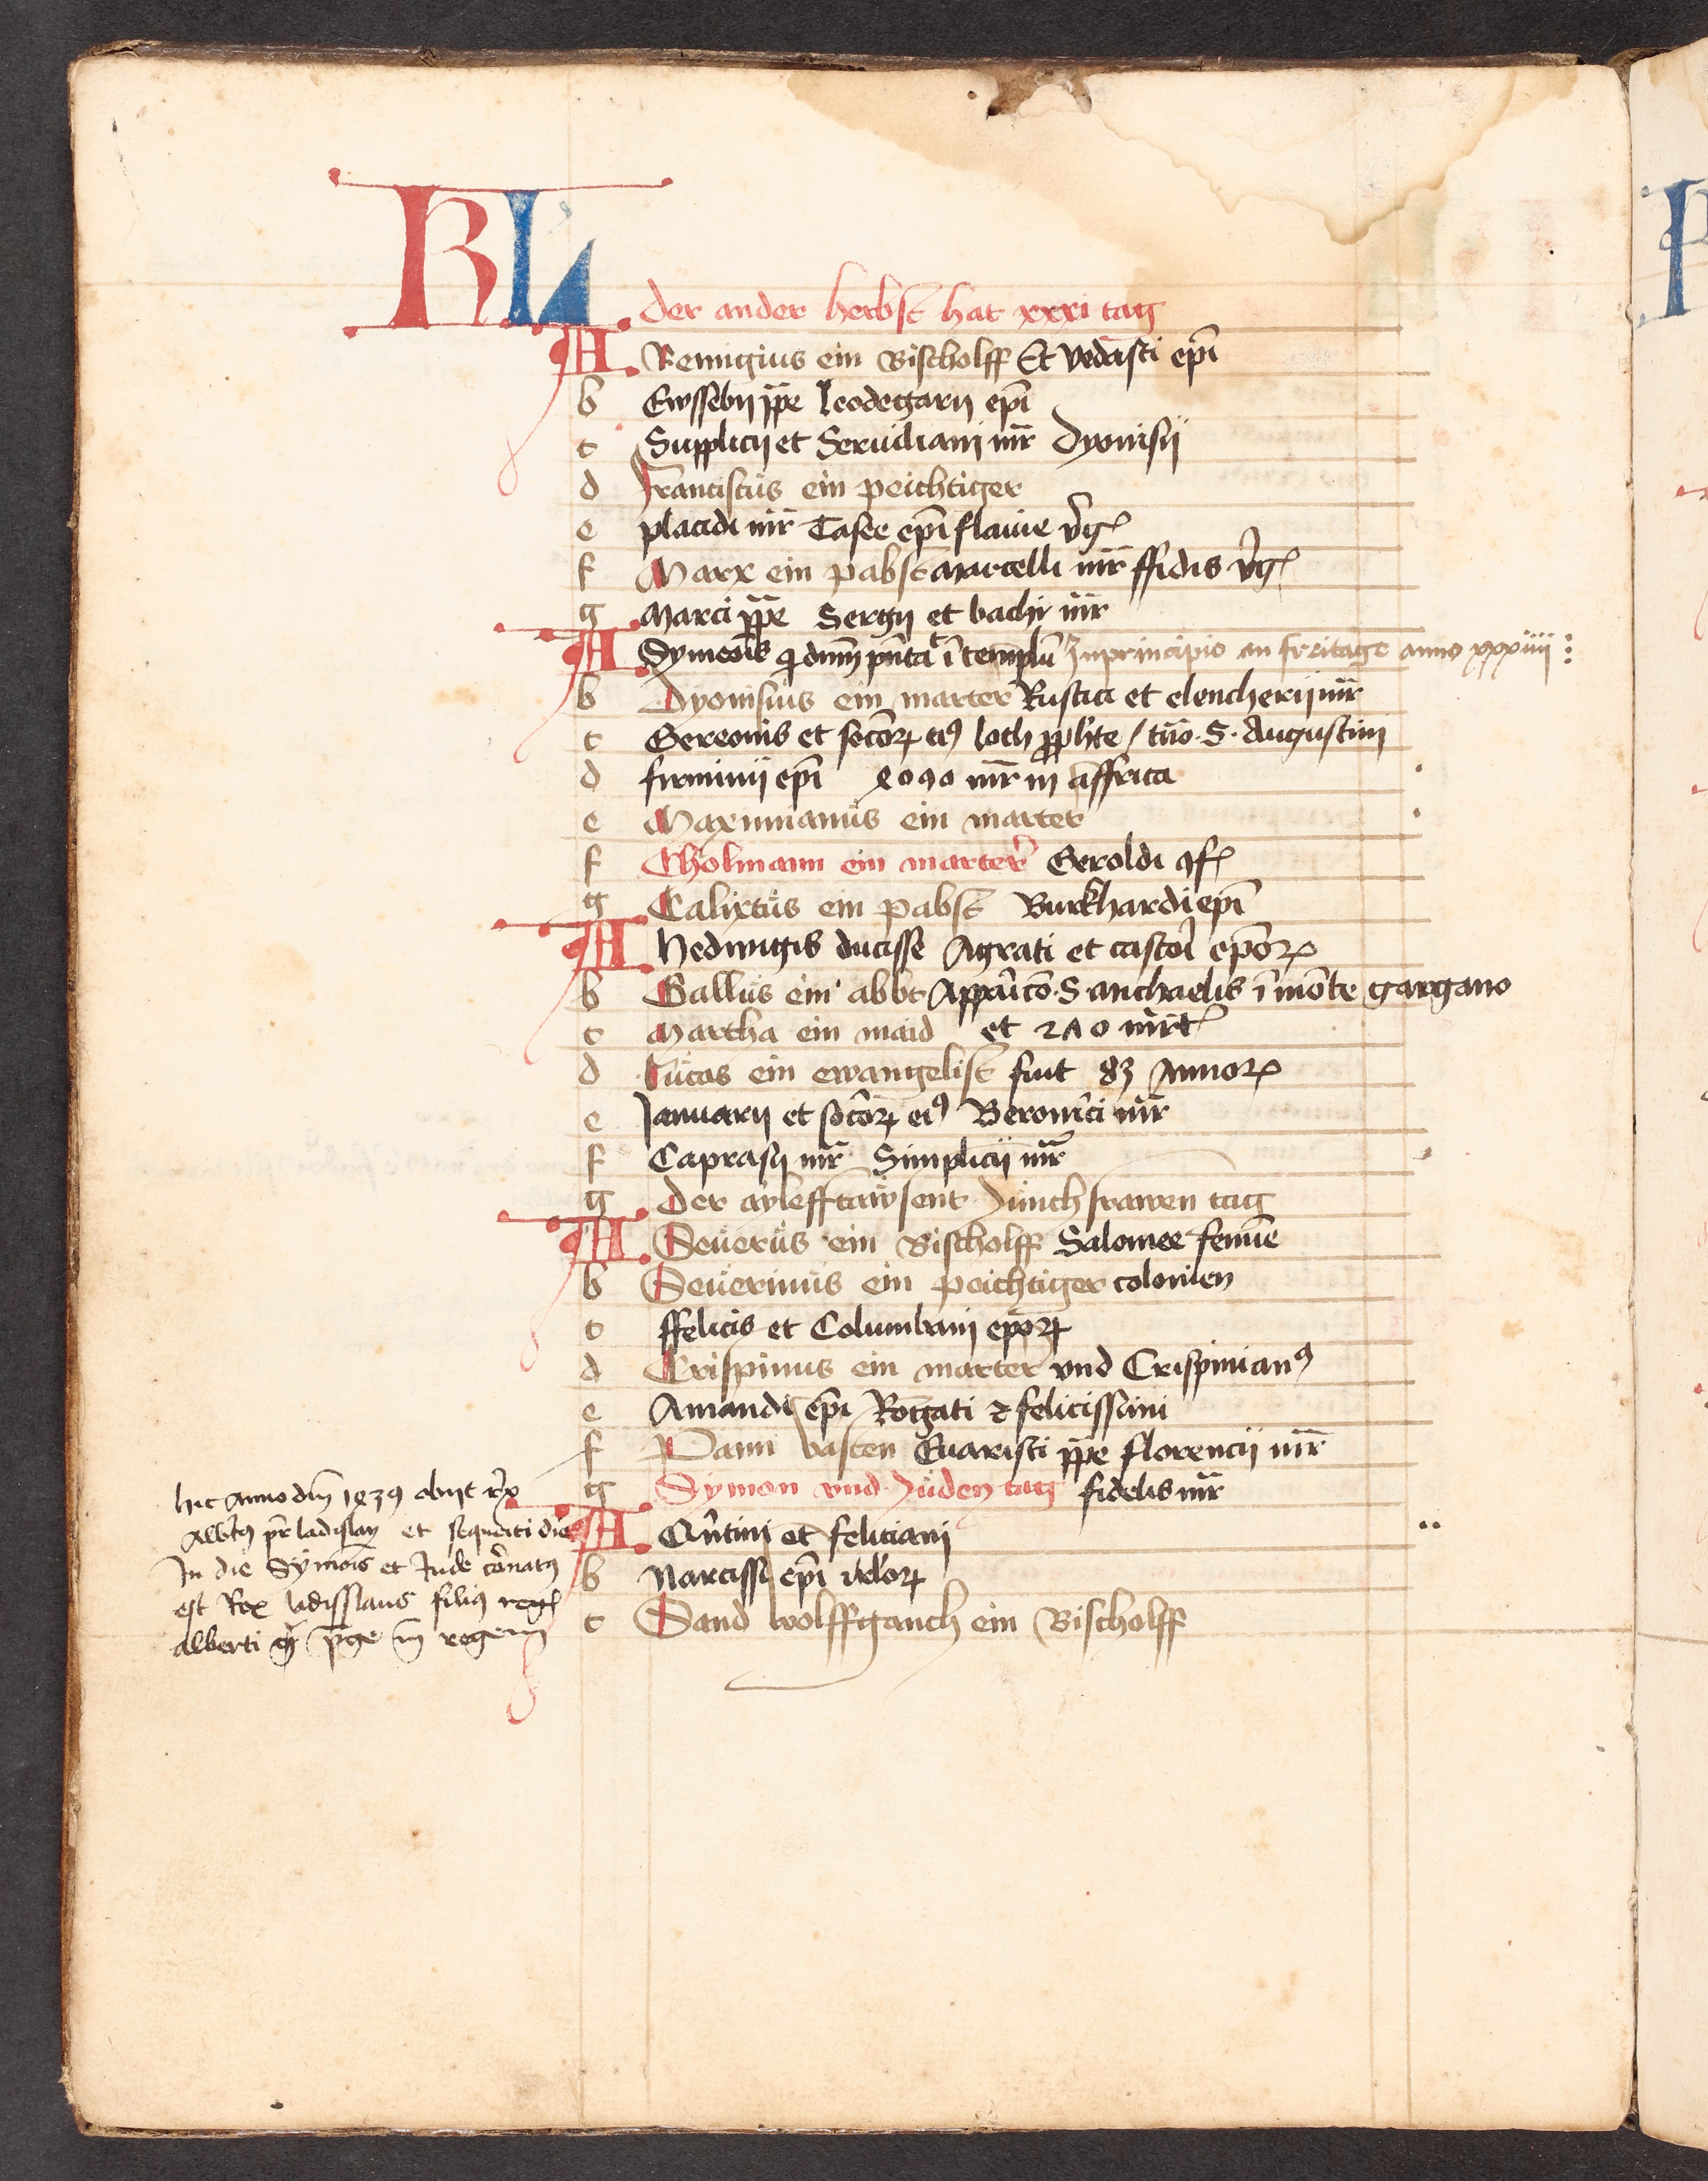 KL
der ander herbst hat xxxi tag
A Remigius ein Bischolff Et vedasti epi
b Ewssebij ppe leodegarij epi
c Supplicij et Seruiliani mr Dyonisij
d Franciscus ein peichtiger
e placidi mr epi flauie virg
f Marx ein pabst marcelli mr ffidis virg
g Marci ppe Sergij et bachi mr
A Symeonis q dnm in templu Inprincipio an freitage anno xxxiiii
b Dyonisius ein marter Rustici et elencherij mr
c Gereonis et socior eius loth pphete / S. Augustini
d firminij epi mr in affrica
e Maximianus ein marter
f Cholmann ein marter Geroldi 9f
g Calixtus ein pabst Burkhardi epi
A Hedwigis ducisse Agrati et castoris epor
b Gallus ein abbt S. michaelis i monte gargano
c Martha ein maid et 270 mrt
d Lucas ein ewangelist fuit 83 Annor
e Januarij et socior ei9 Beronici mr
f Caprasij mr Simplicij mr
g Der aylefftawsent Junchfrawen tag
A Seuerus ein Bischolff Salomee femine
b Seuerinus ein peichtiger colonien
c ffelicis et Columbani epor
d Crispinus ein marter vnd Crispinian9
e Amandi epi Rogati 2 felicissimi
f Pann vasten Euaristi ppe florencij mr
g Symon vnd Juden tag fidelis mr
A Quintini et feliciani
b Narcissi epi
c Sand wolffganch ein Bischolff
hic Anno dni 1439 obijt rex
Albt9 pr ladislay et sequenti die
In die Symois et Jude
est Rex ladisslaus fili9 reg
alberti rege in regem